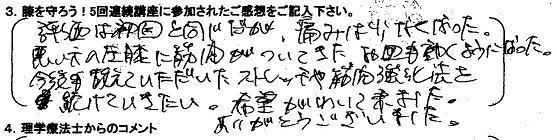 3. 膝を守ろう！5回連続講座に参加されたご感想をご記入下さい。
評価は初回と同じだが、痛みは少なくなった。
悪い方の左膝に筋肉がついてきた お皿も動くようになった。
今後も教えていただいたストレッチや筋肉強化法を
続けていきたい。希望がわいて来ました。
ありがとうございました。
4. 理学療法士からのコメント